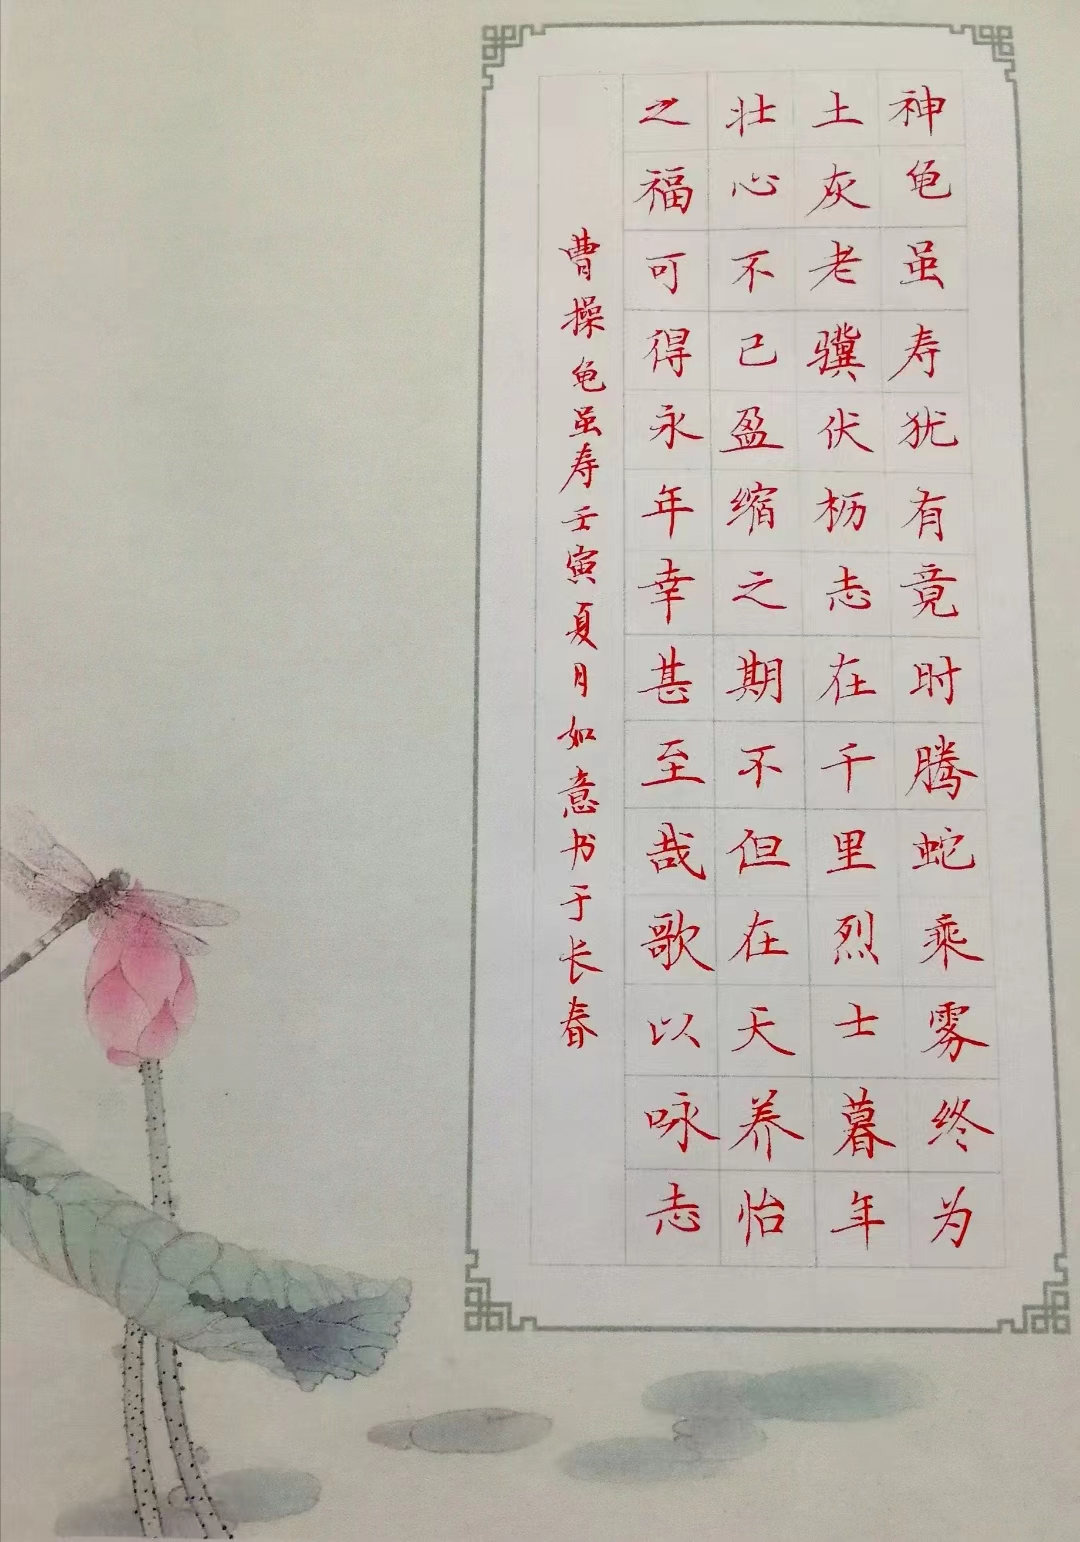 神龟虽寿犹有竟时腾蛇乘雾终为
土灰老骥伏枥志在千里烈士暮年
壮心不已盈缩之期不但在天养怡
之福可得永年幸甚至哉歌以咏志
曹操龟虽寿壬寅夏月如意书于长春